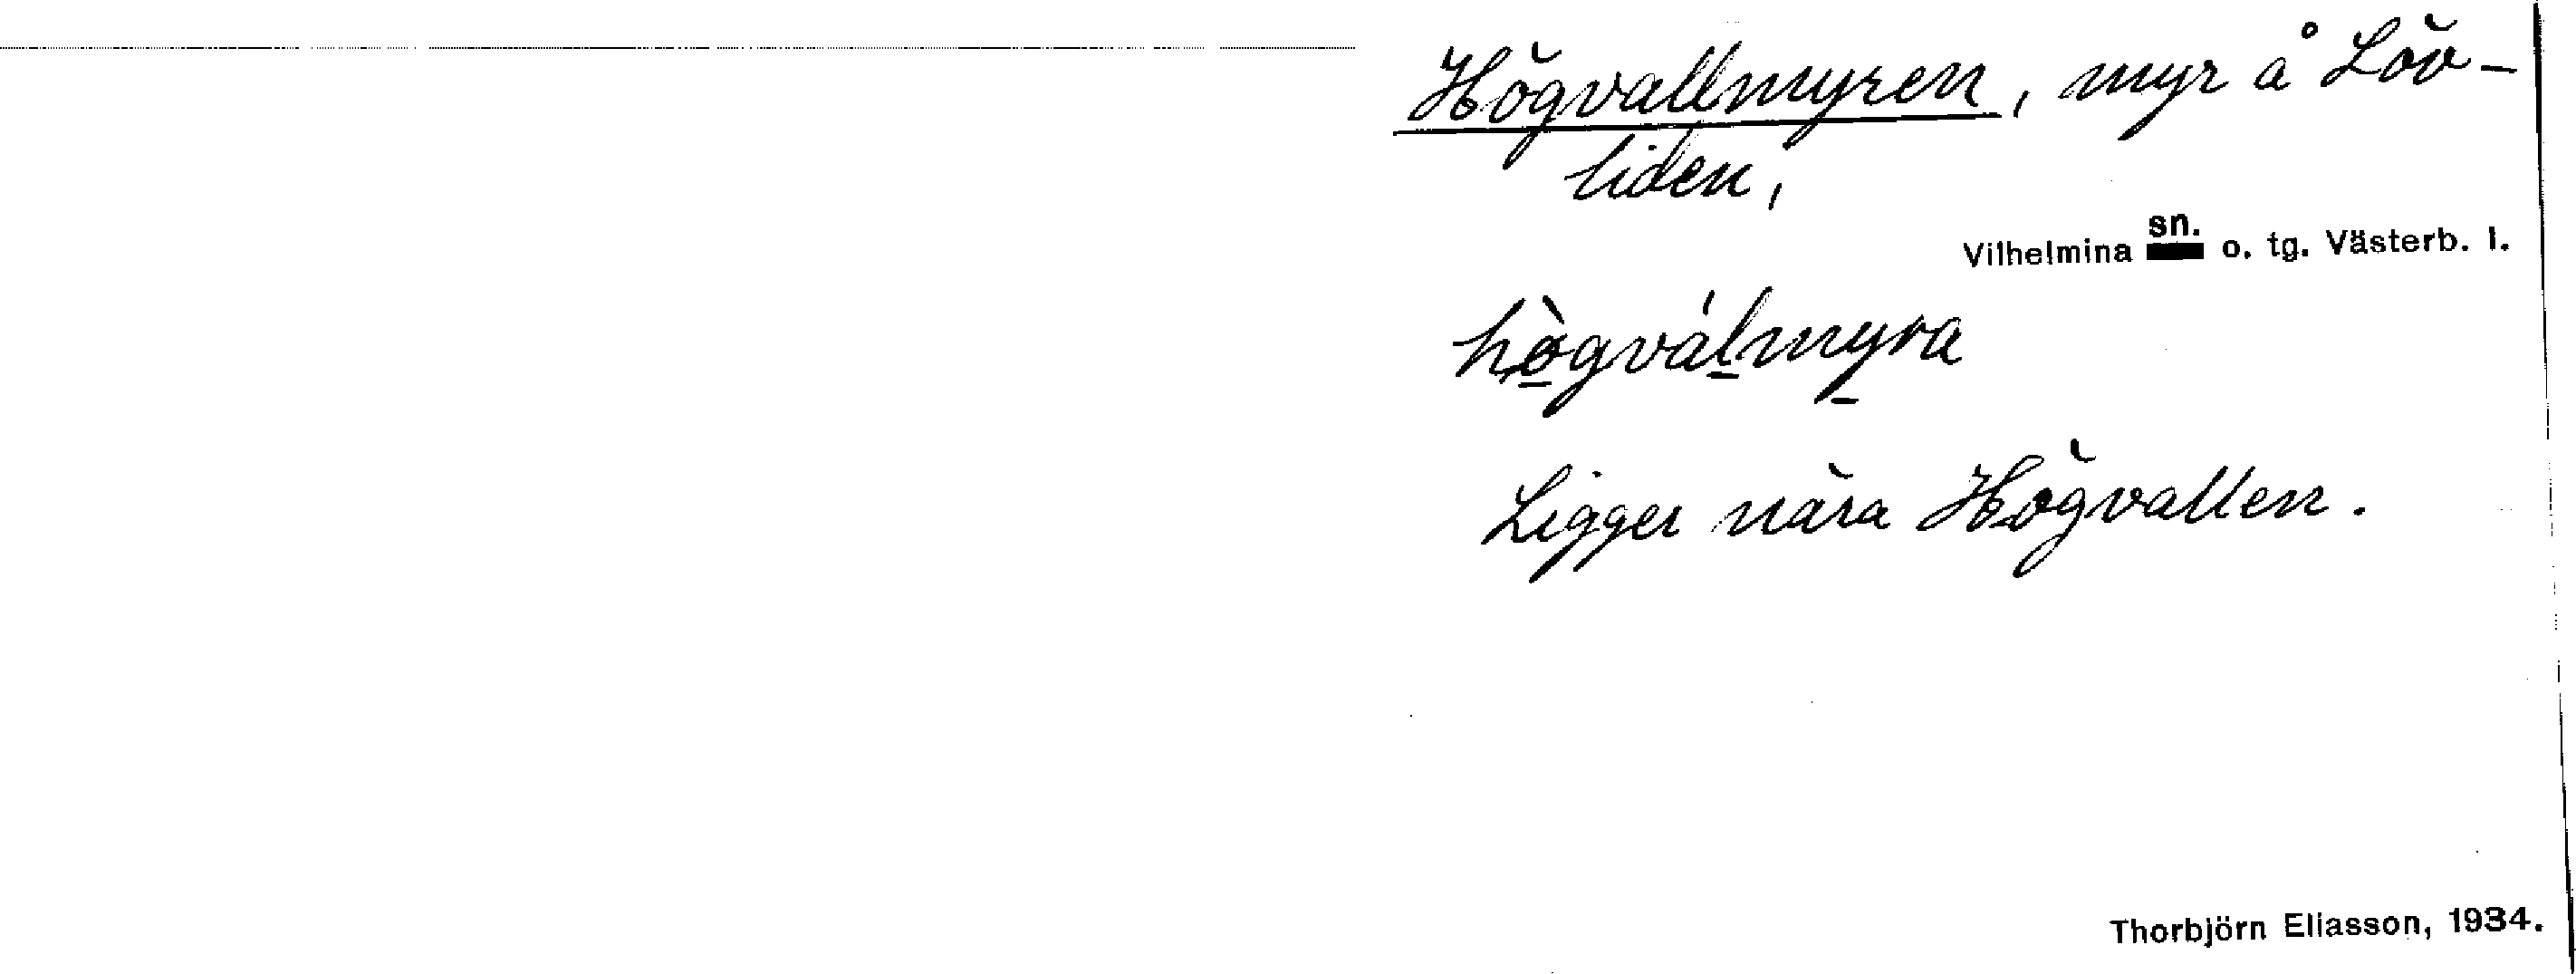 Högvallmyren, myr å Löv-
liden,
Vilhelmina sn. o. tg. Västerb. l.
hògválmyra
Ligger nära Högvallen.
Thorbjörn Eliasson, 1934.